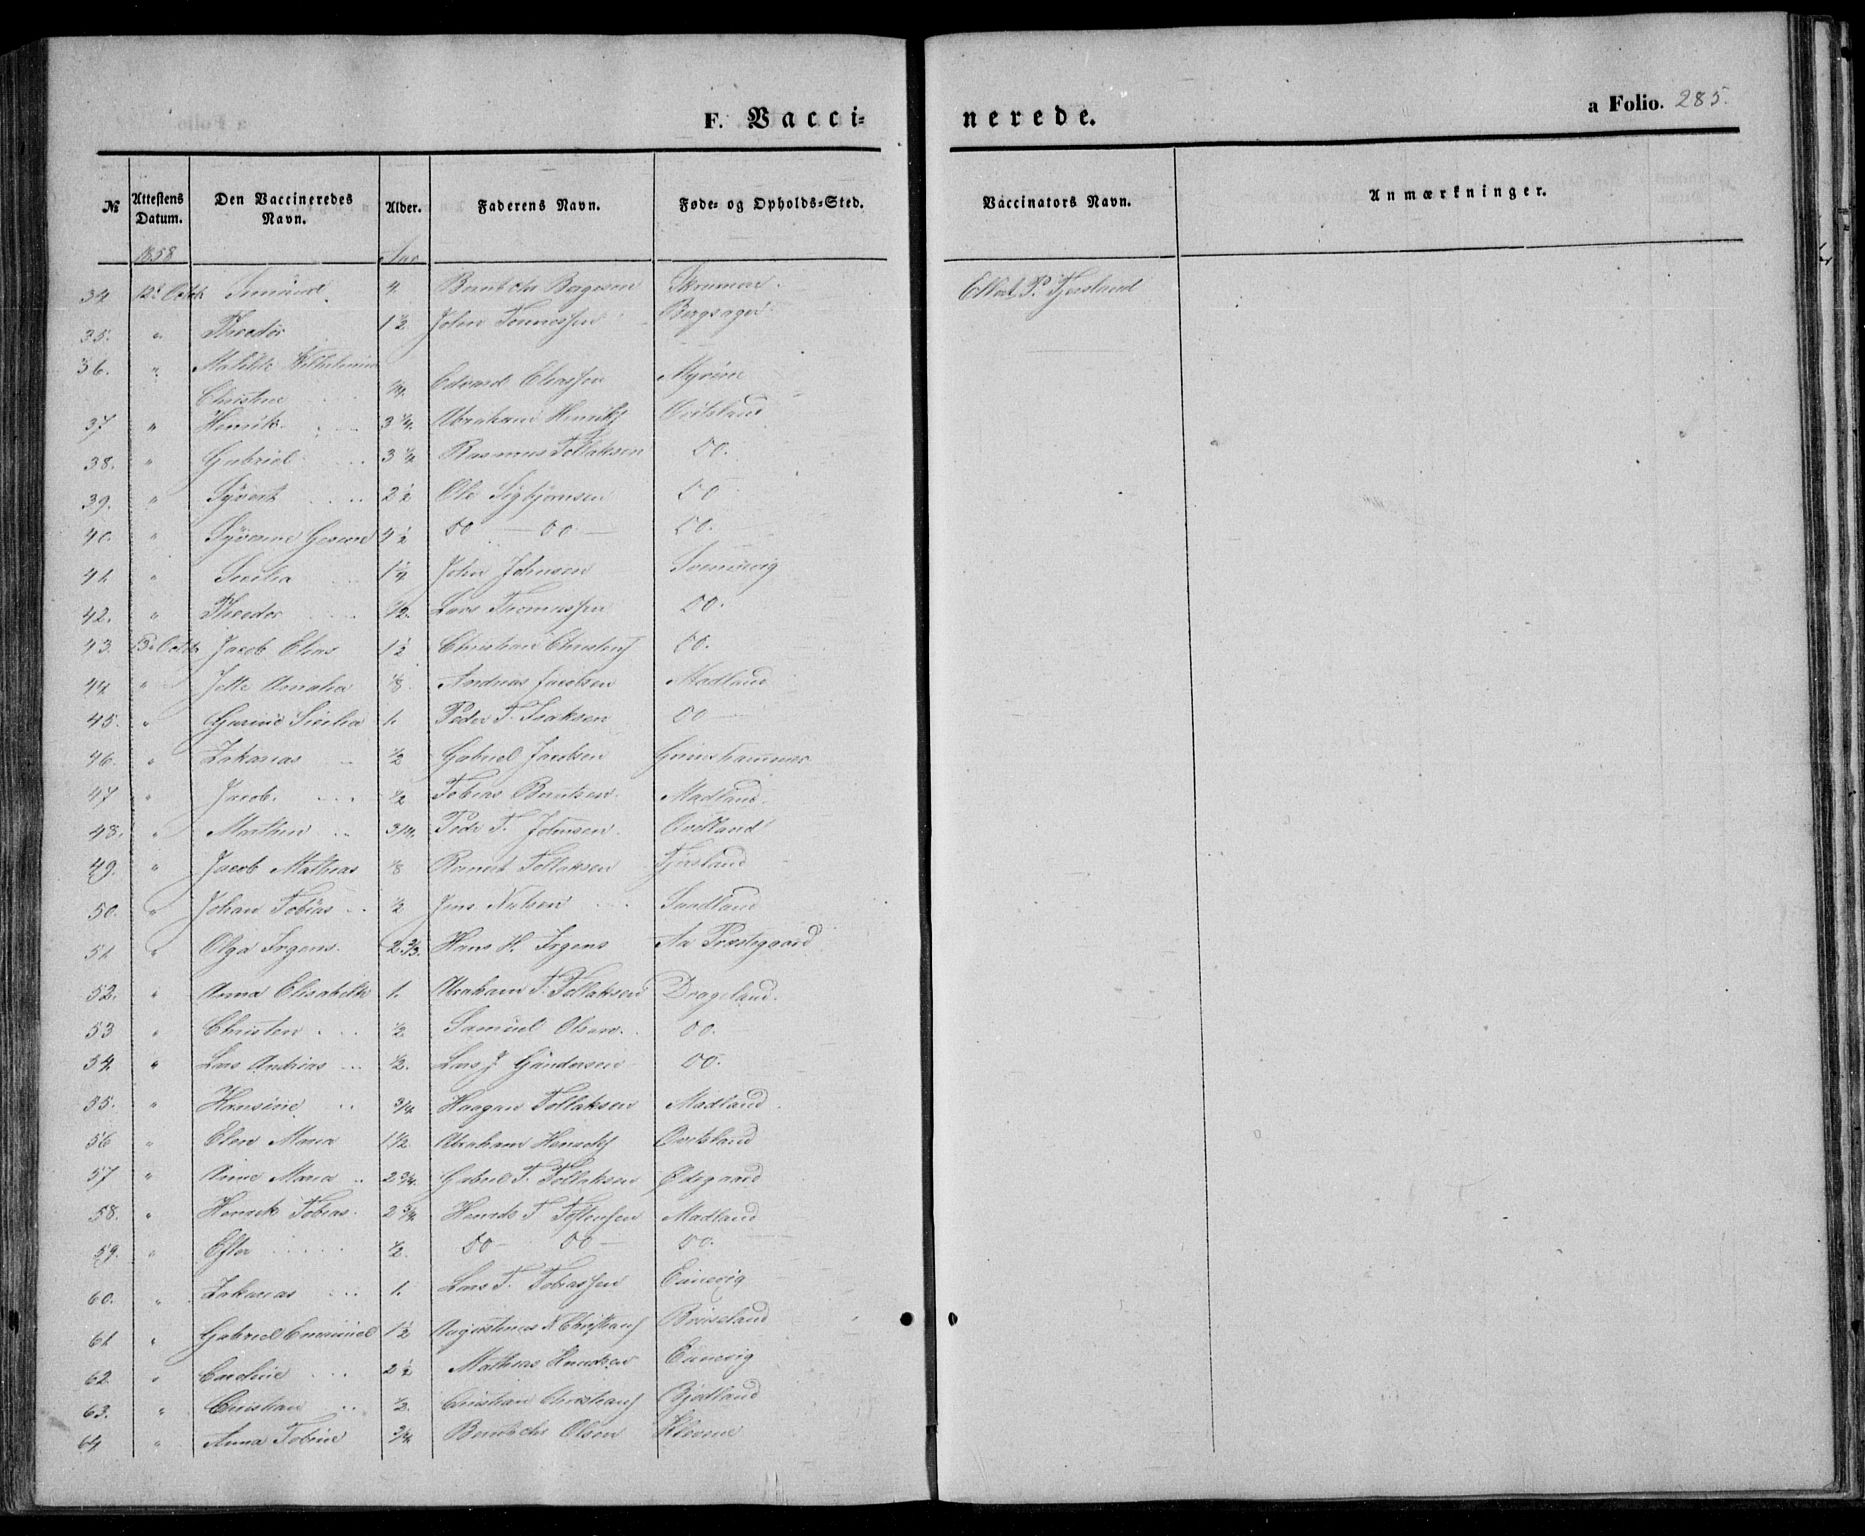 F. Vacci-
nerede.
a Folio. 285.
№ Attestens Datum. Den Vaccineredes Navn. Alder. Faderens Navn. Føde- og Opholds-Sted. Vaccinators Navn. Anmærkninger.
1858 Aar
34 12 Octb 4. Berntchr Børgesen P. Tjersland
35. " Theodor 1½ John Tønnessen Bergsager
36. " Mathilde Wilhelmine
Christine ¼ Edvard Eliassen
37 " Henrik 3¼ Abraham Henriks Qvitsland
38. " Gabriel 3¼ Rasmus Tollaksen do.
39. " Syvert 2½ Ole Sigbjørnsen do
40. " Syverine Gurine 4½ do do do.
41 " Sicilia 1¼ John Johnsen Svennevig
42. " Theodor ½. Lars Thomassen do.
43. 13 Octb Jacob Elias 1½ Christian Christens do.
44 " Jette Amalia ⅛. Andreas Jacobsen Madland
45. " Gurine Sicilia 1. Peder T. Isaksen do
46. " Zakarias ½ Gabriel Jacobsen Grimshammer
47 " Jacob. ½ Tobias Berntsen. Madland.
48. " Marthin 3/4. Peder T. Johnsen. Qvitland
49. " Jacob Mathias ⅛ Reinert Tollaksen Tjersland
50. " Johan Tobias ½ Jens Nielsen Sandland
51 " Olga Irgens. 2⅔. Hans H. Irgens Aa Præstegaard
52. " Anna Elisabeth 1. Abraham T. Tollaksen Drageland.
53 " Christen ½ Samuel Olsen. do.
54 " Lars Andreas ½. Lars J Gundersen do.
55. " Hansine 3/4 Haagen Tollaksen Madland.
56 " Elen Maria 1½. Abraham Henriks Qvitsland
57 " Anne Maria 2¾. Gabriel T. Tollaksen Ødegaard
58. " Henrik Tobias. 2¾ Henrik T. Madland
59. " Ester ½. do do do.
60. " Zakarias 1. Lars T. Tobiassen Eunevig
61 " Gabriel Emanuel 1½ Augustinus Christians
62. " Caroline 2½ Mathias Knudsen Eunevig
63. " Christian ½. Christian Christians Bjelland
64 " Anna Tobine ¾. Berntchr Olsen Klevene